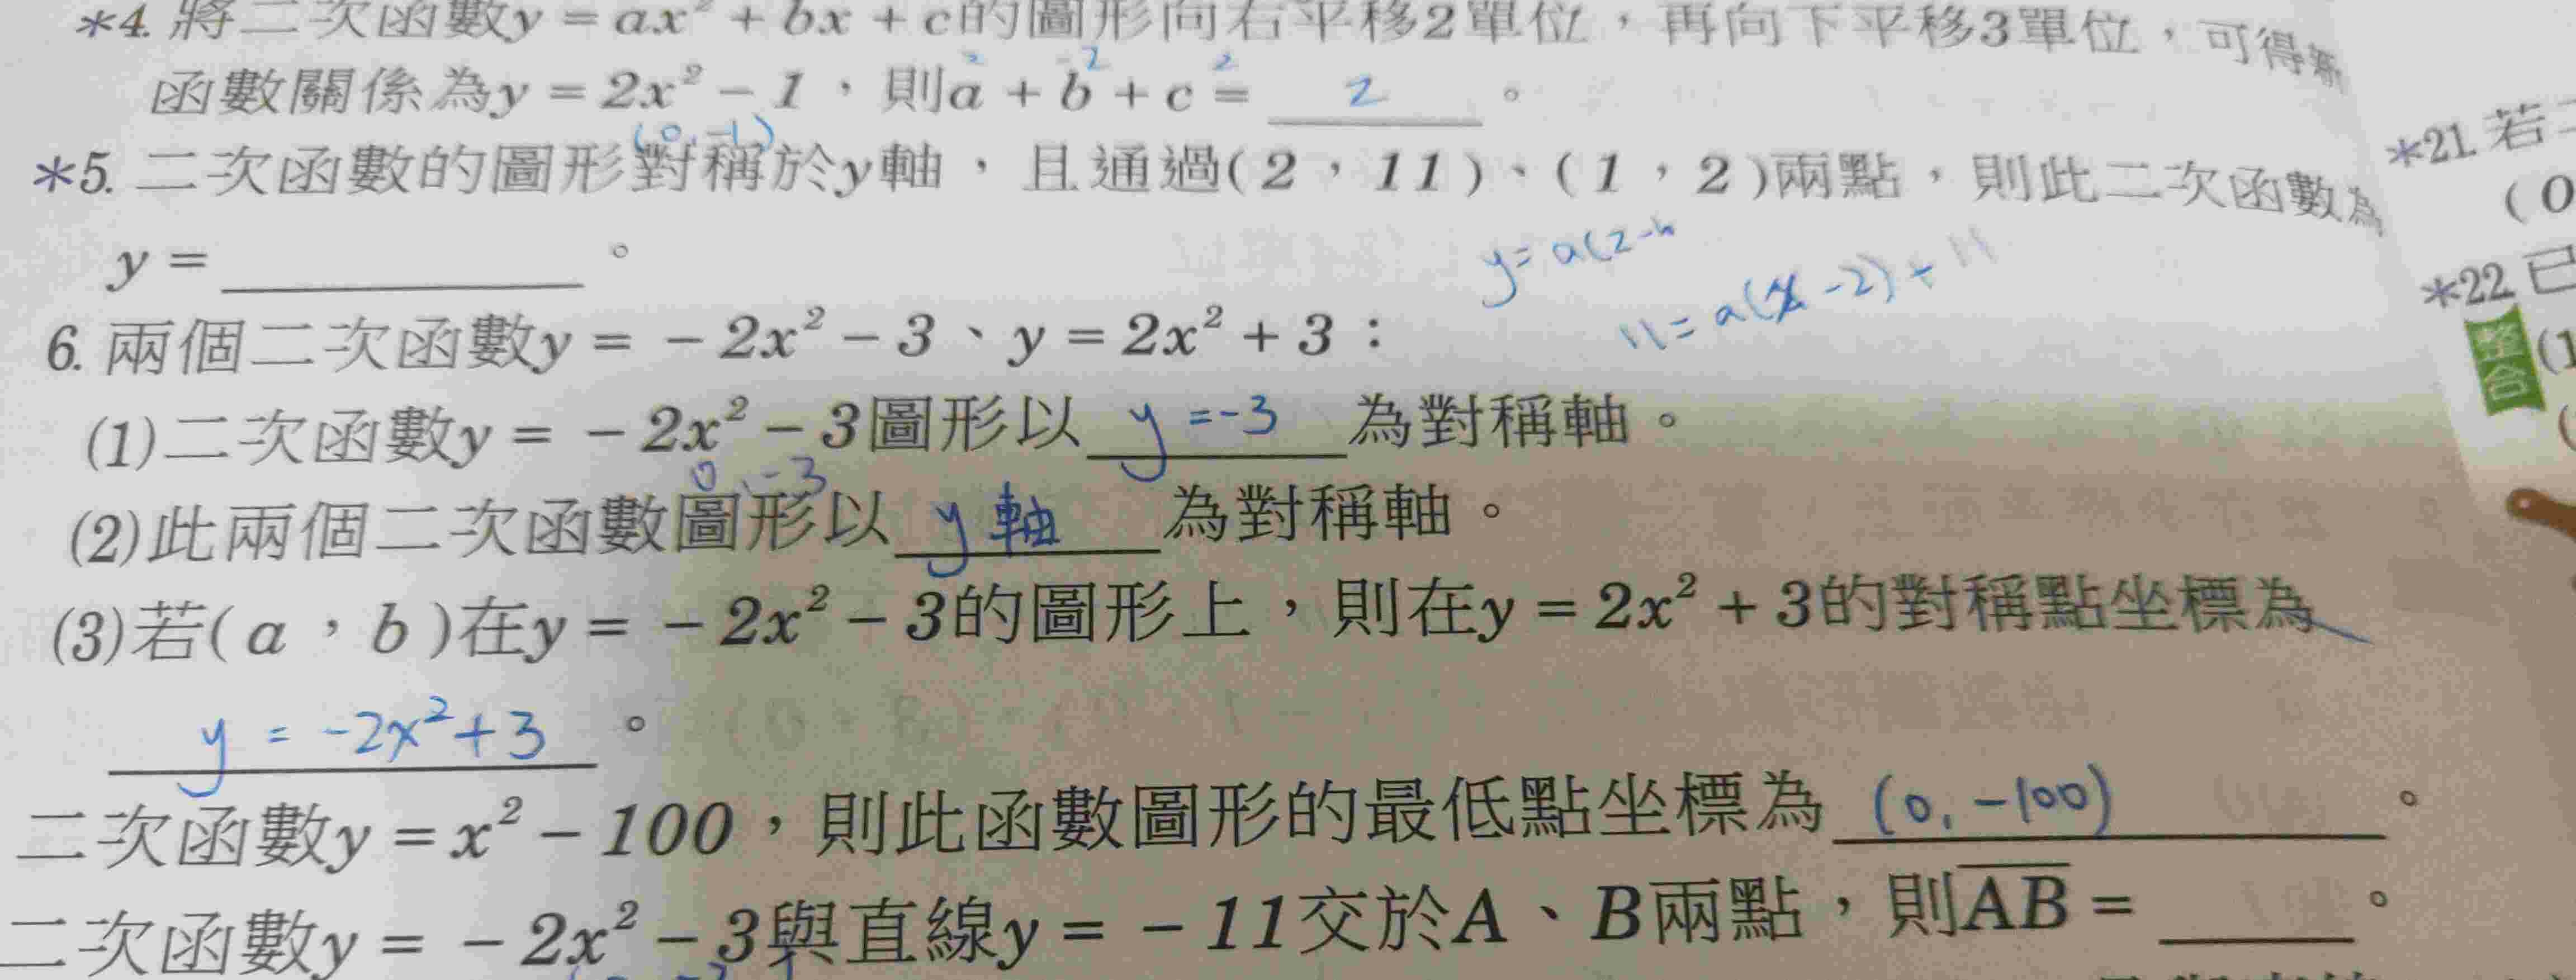 *4. 將二次函數y = ax² + bx + c的圖形向右平移2單位，再向下平移3單位，可得新
2 -2 2
函數關係為y = 2x² - 1，則a + b + c = 2。
(0, -1)
*5. 二次函數的圖形對稱於y軸，且通過(2，11)、(1，2)兩點，則此二次函數為
y = ______。
y = a(2-h
11 = a(x-2) + 11
6. 兩個二次函數y = -2x² - 3、y = 2x² + 3：
(1)二次函數y = -2x² - 3圖形以 y = -3 為對稱軸。
0, -3
(2)此兩個二次函數圖形以 y軸 為對稱軸。
(3)若(a，b)在y = -2x² - 3的圖形上，則在y = 2x² + 3的對稱點坐標為
y = -2x² + 3。
二次函數y = x² - 100，則此函數圖形的最低點坐標為 (0, -100)。
二次函數y = -2x² - 3與直線y = -11交於A、B兩點，則AB = ______。
*21. 若
(0
*22. 已
整合
(1
(